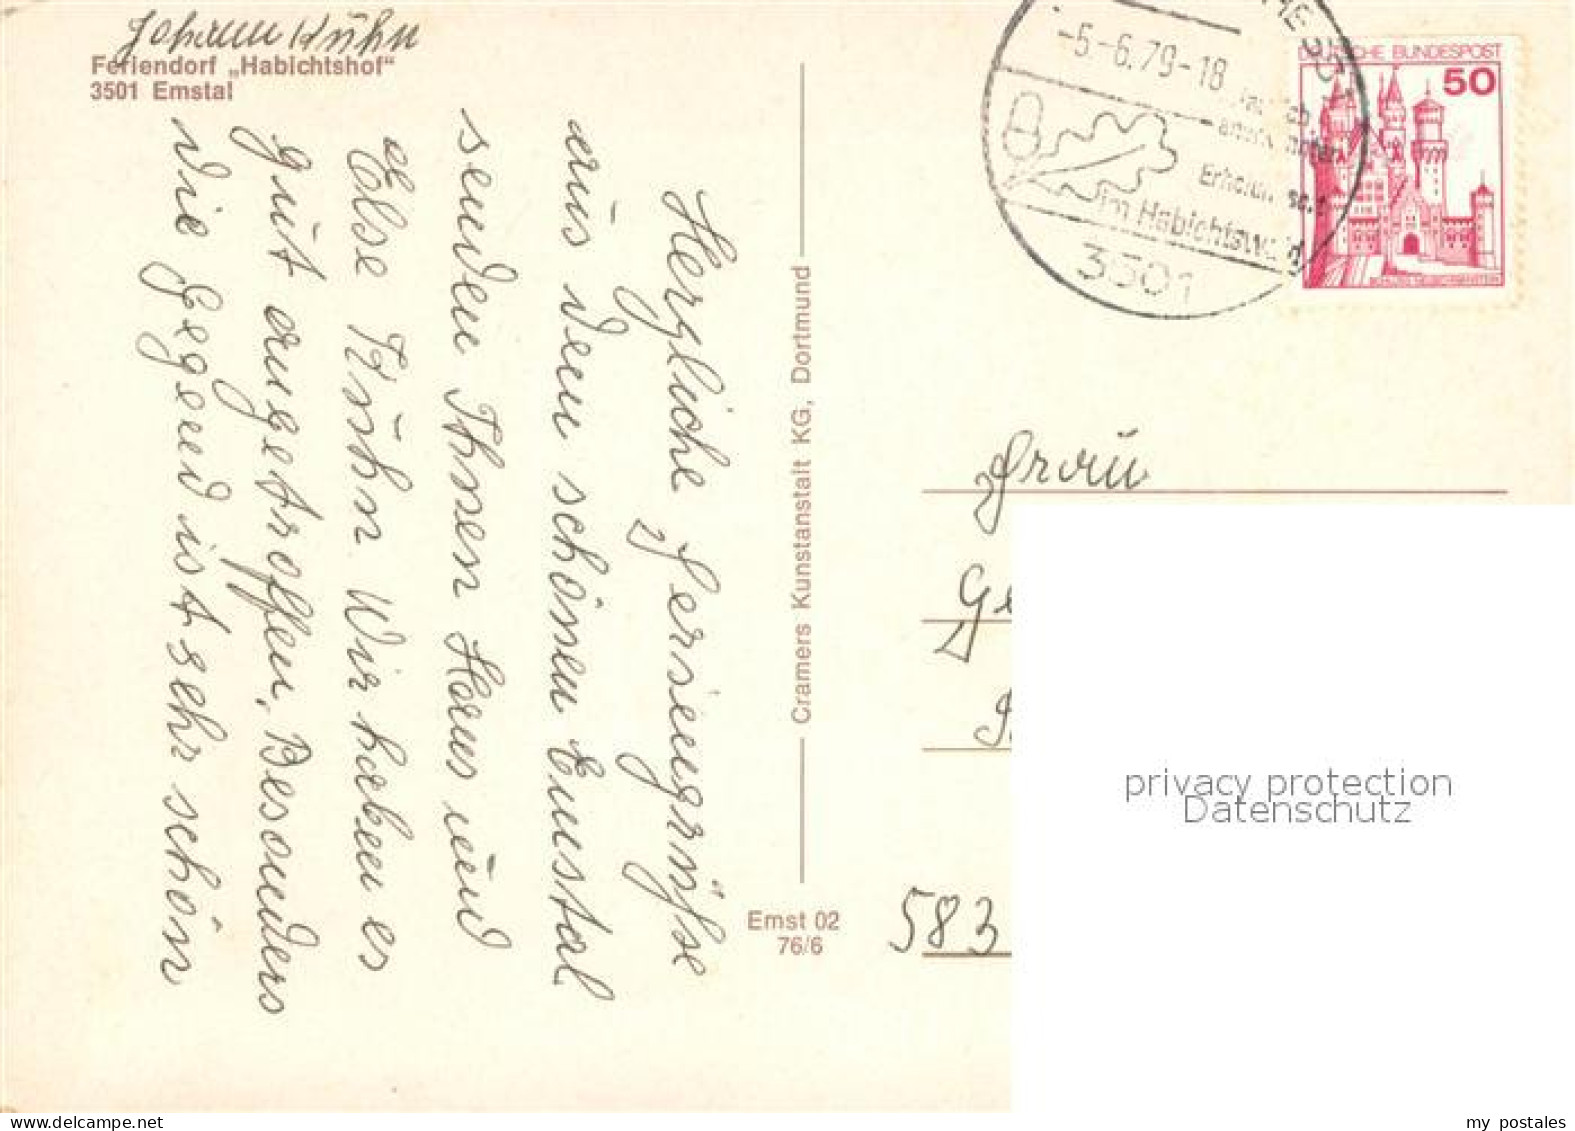 Johann Kühn
Feriendorf „Habichtshof“
3501 Emstal
Herzliche Feriengrüße
aus dem schönen Emstal
senden Ihnen Hans und
Else Kühn. Wir haben es
gut angetroffen, Besonders
die Gegend ist sehr schön
Cramers Kunstanstalt KG, Dortmund
Emst 02
76/6
-5.-6.79-18
im Habichtswald
3501
DEUTSCHE BUNDESPOST
50
SCHLOSS NEUSCHWANSTEIN
Frau
583
privacy protection
Datenschutz
my postales
www.delcampe.net